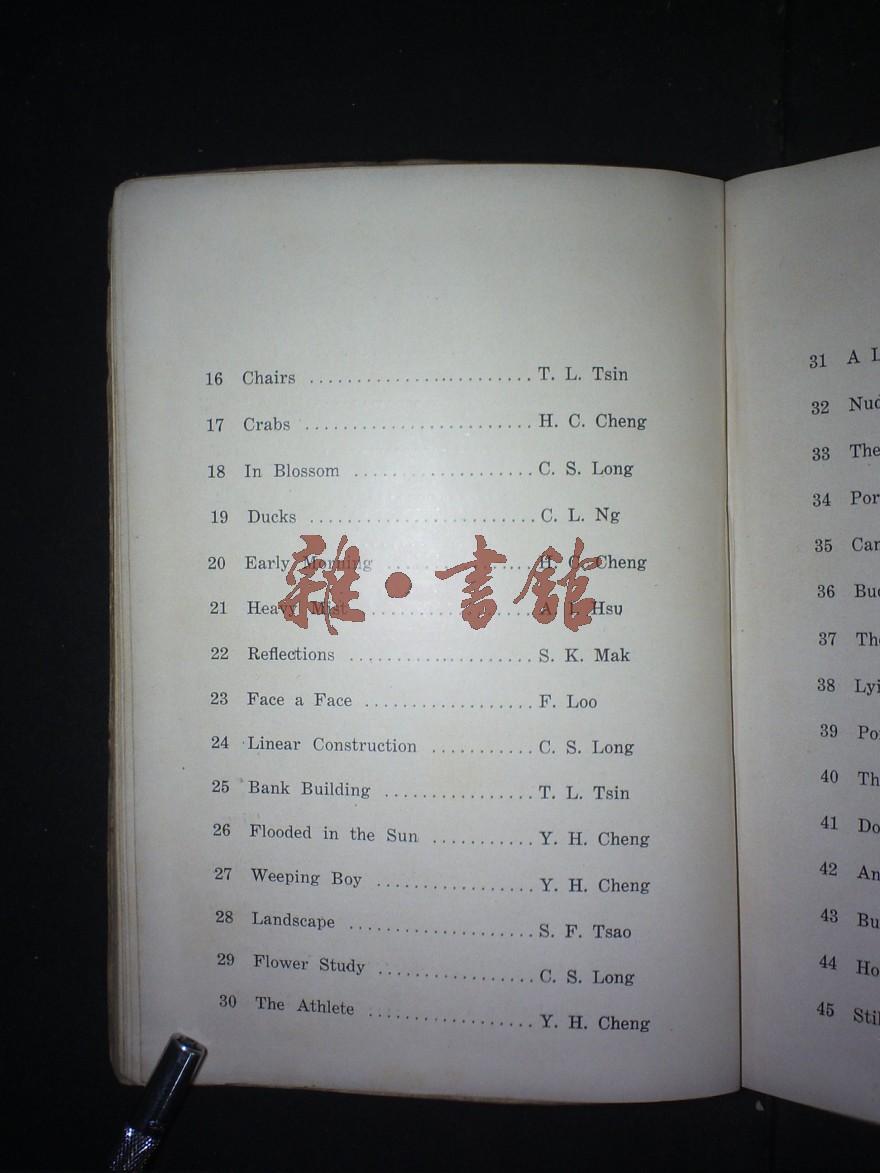 16 Chairs ........................ T. L. Tsin
17 Crabs ........................ H. C. Cheng
18 In Blossom ................... C. S. Long
19 Ducks ........................ C. L. Ng
20 Early Morning ................ H. C. Cheng
21 Heavy Mist .................. A. L. Hsu
22 Reflections .................... S. K. Mak
23 Face a Face .................. F. Loo
24 Linear Construction ........... C. S. Long
25 Bank Building ................ T. L. Tsin
26 Flooded in the Sun ........... Y. H. Cheng
27 Weeping Boy ................. Y. H. Cheng
28 Landscape .................... S. F. Tsao
29 Flower Study ................. C. S. Long
30 The Athlete .................. Y. H. Cheng
雜·書館
31 A
32
33 The
34
35
36
37
38
39
40
41
42
43
44
45